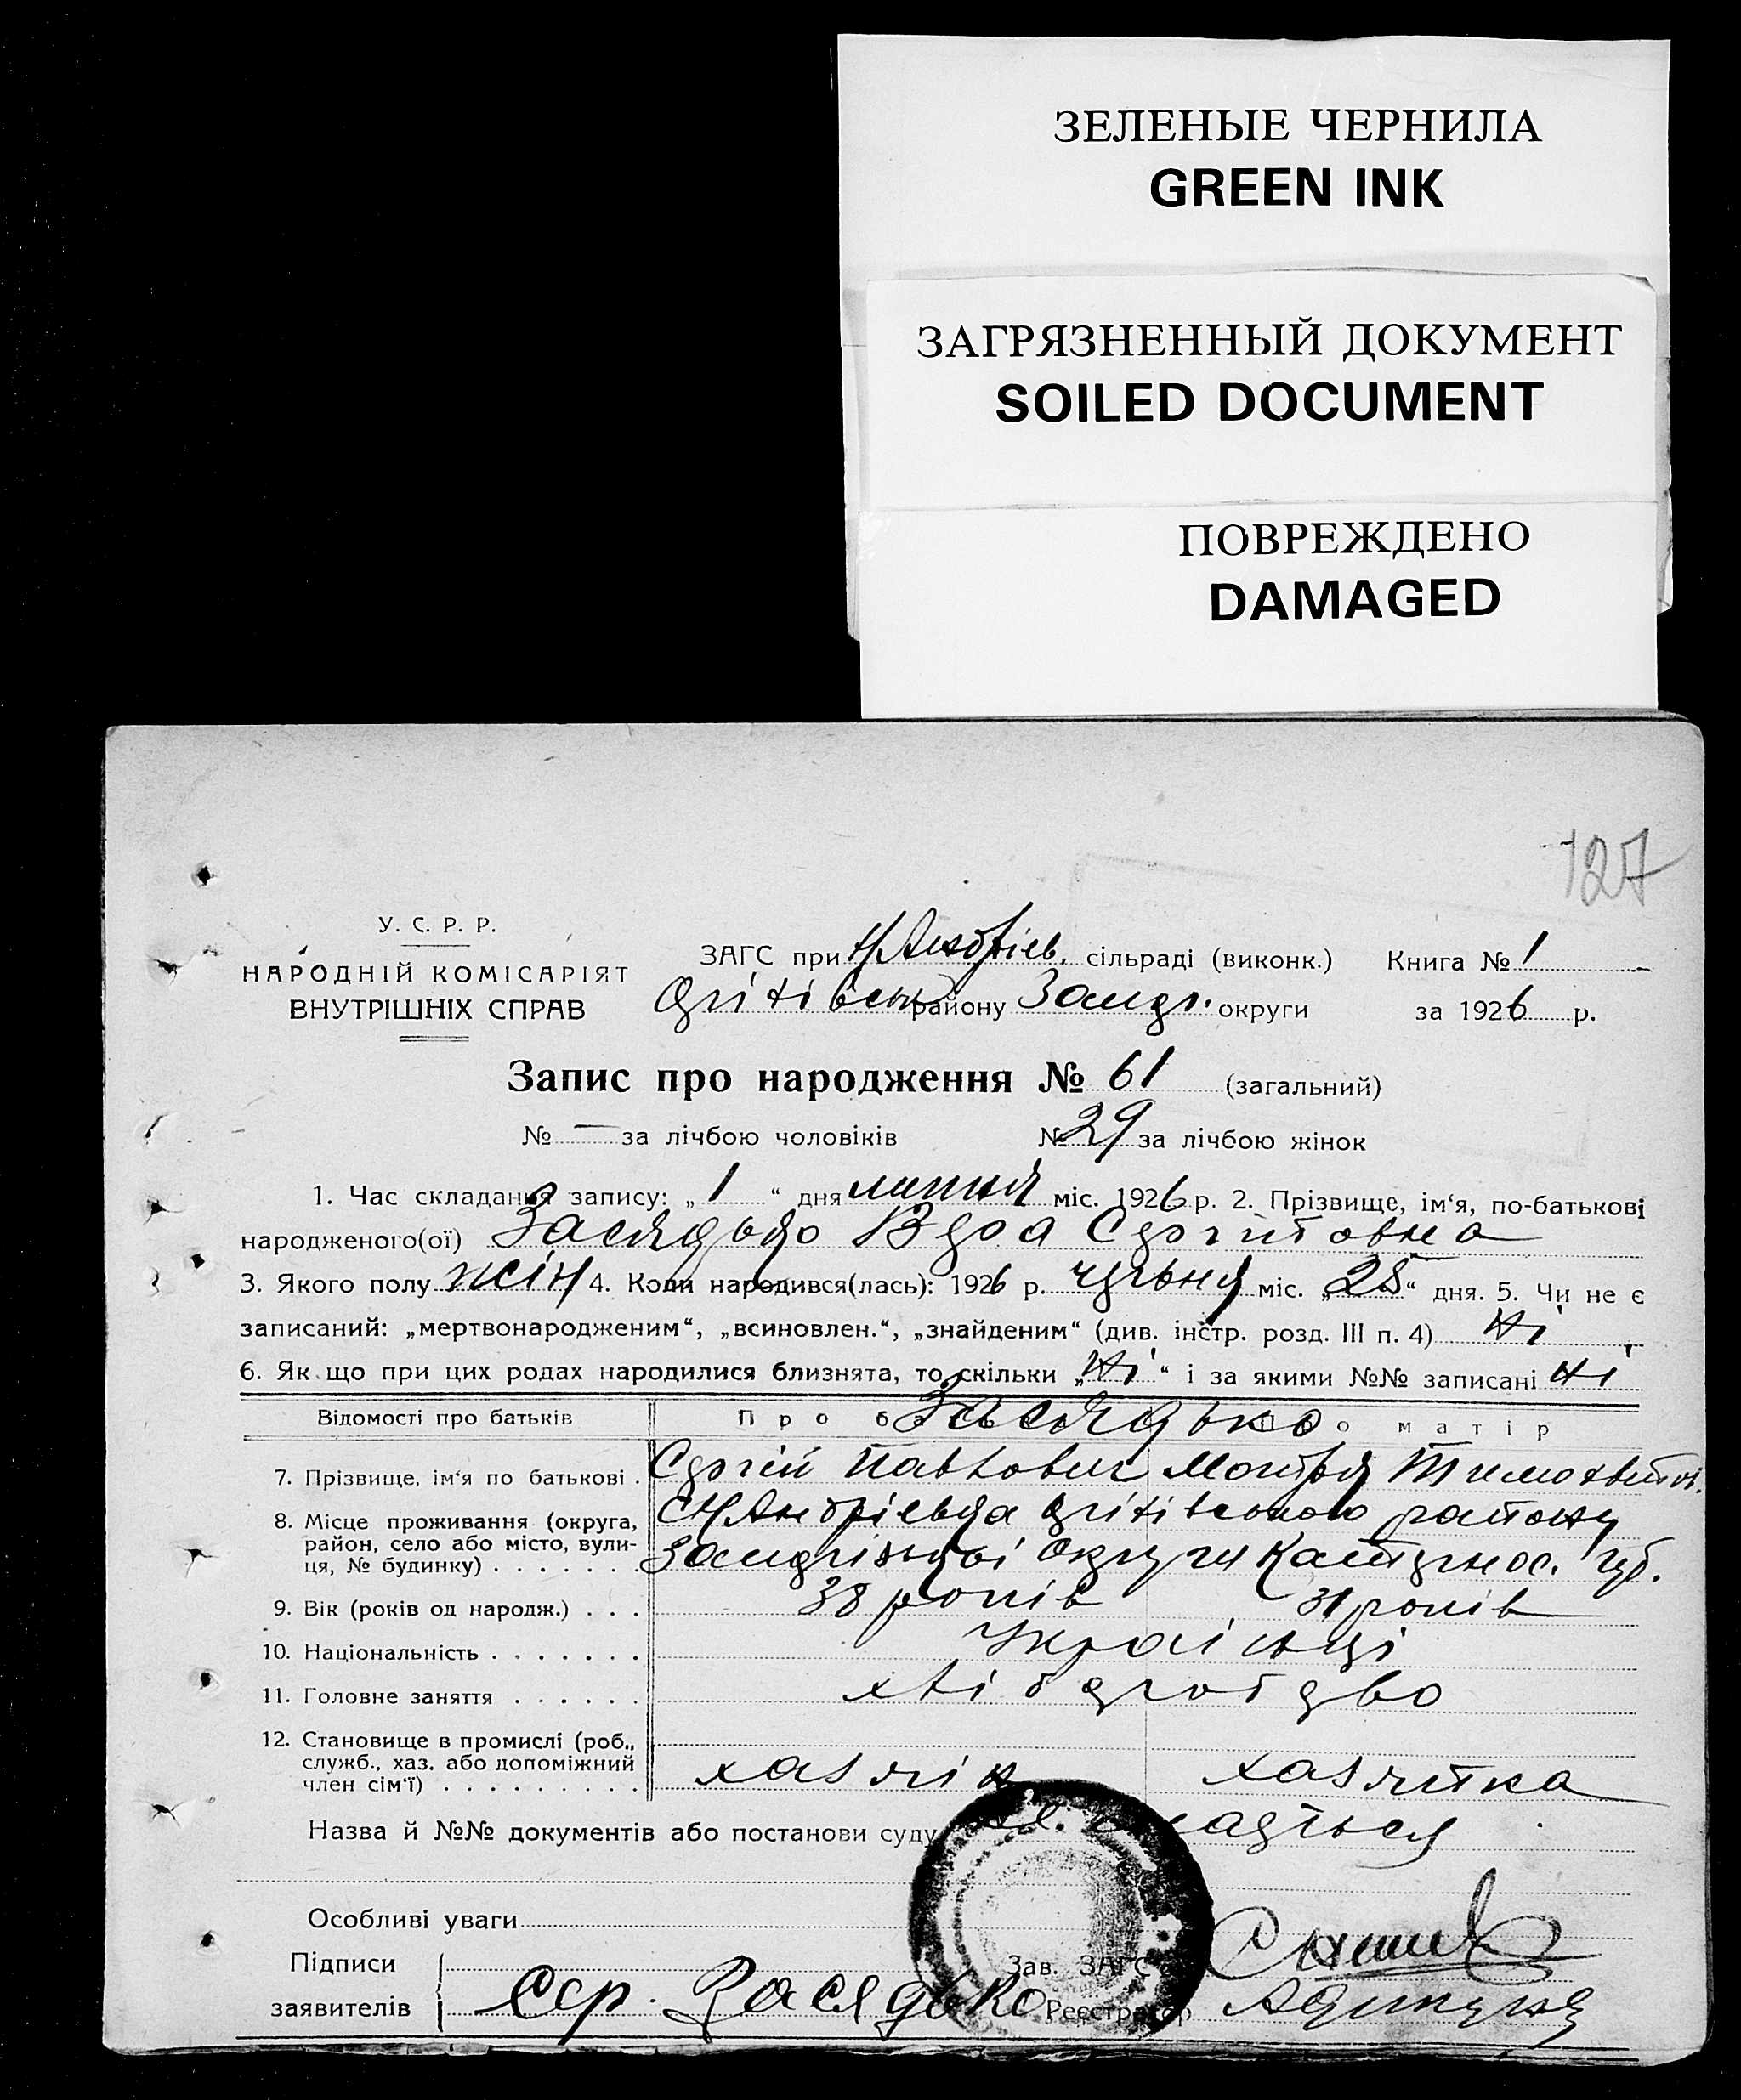 ЗЕЛЕНЫЕ ЧЕРНИЛА
GREEN INK
ЗАГРЯЗНЕННЫЙ ДОКУМЕНТ
SOILED DOCUMENT
ПОВРЕЖДЕНО
DAMAGED
127
У. С. Р. Р.
НАРОДНІЙ КОМІСАРІЯТ
ВНУТРІШНІХ СПРАВ
ЗАГС при Н/Андріів. сільраді (виконк.) Книга № 1
району Запор. округи за 1926 р.
Запис про народження № 61 (загальний)
№ — за лічбою чоловіків № 29 за лічбою жінок
1. Час складання запису: „ 1 “ дня липня міс. 1926 р. 2. Прізвище, ім‘я, по-батькові
народженого(ої) Засядько Вера Сергіїовна
3. Якого полу жін 4. Коли народився(лась): 1926 р. червня міс. „ 25 “ дня. 5. Чи не є
записаний: „мертвонародженим“, „всиновлен.“, „знайденим“ (див. інстр. розд. III п. 4) Ні
6. Як що при цих родах народилися близнята, то скільки „ Ні “ і за якими №№ записані Ні
Відомості про батьків Про Засядько матір
7. Прізвище, ім‘я по батькові . Сергій Павлович Мотря
8. Місце проживання (округа, район, село або місто, вулиця, № будинку) . . . . . . . С Н/Андрієвка району
Округи Катерінос. губ.
9. Вік (років од народж.) . . . 38 років 31 років
10. Національність . . . . . . . Украінці
11. Головне заняття . . . . . . хліборобство
12. Становище в промислі (роб., служб., хаз. або допоміжний член сім‘ї) . . . . . . . . . хазяїн хазяїка
Назва й №№ документів або постанови суду
Особливі уваги
Підписи
заявителів Сер. Засядько
Зав. ЗАГС
Реєстратор